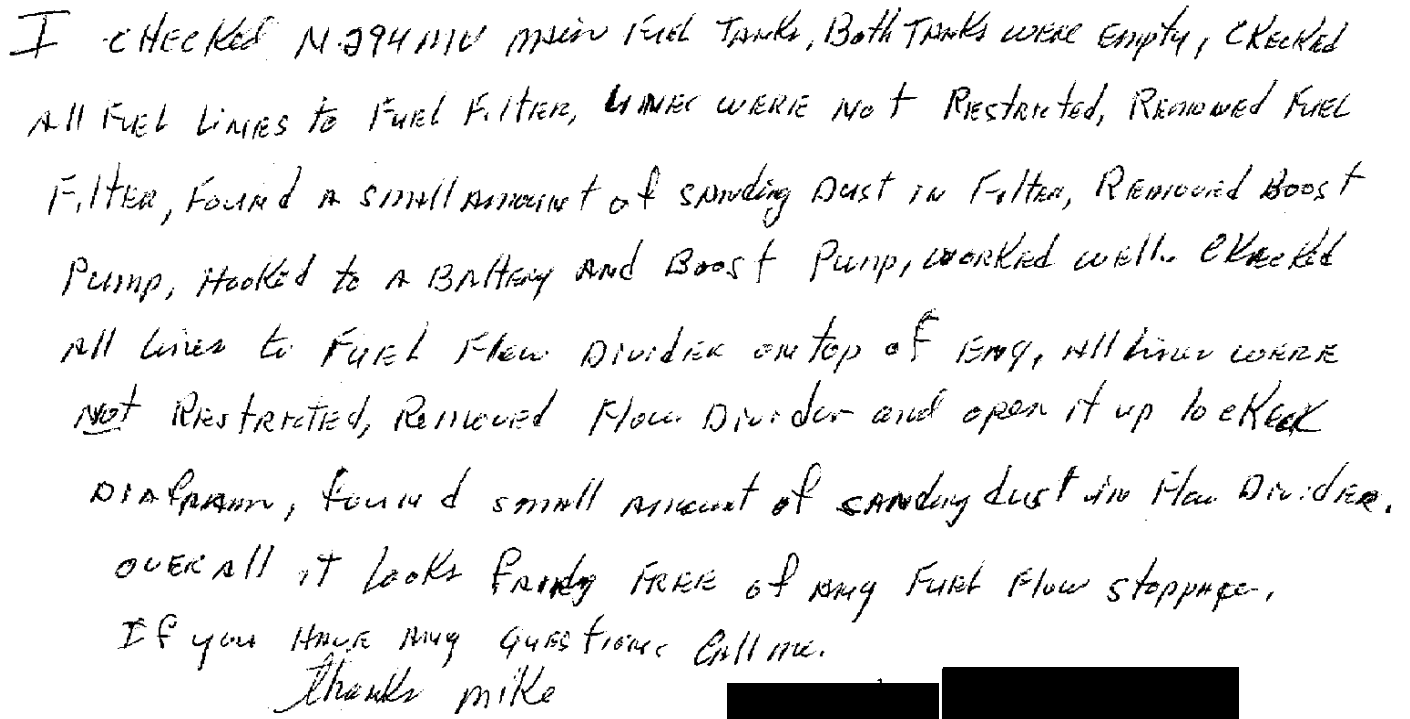 I checked N294MV main Fuel Tanks, Both Tanks were Empty, Checked
All Fuel Lines to Fuel Filter, Lines were Not Restricted, Removed Fuel
Filter, Found a small amount of sanding Dust in Filter, Removed Boost
Pump, Hooked to a Battery and Boost Pump, worked well. Checked
All lines to Fuel Flow Divider on top of Eng, All lines were
Not Restricted, Removed Flow Divider and open it up to check
Diafram, found small amount of sanding dust in Flow Divider.
over all it looks fairly free of any Fuel Flow stoppage,
If you Have Any Questions Call me.
thanks mike